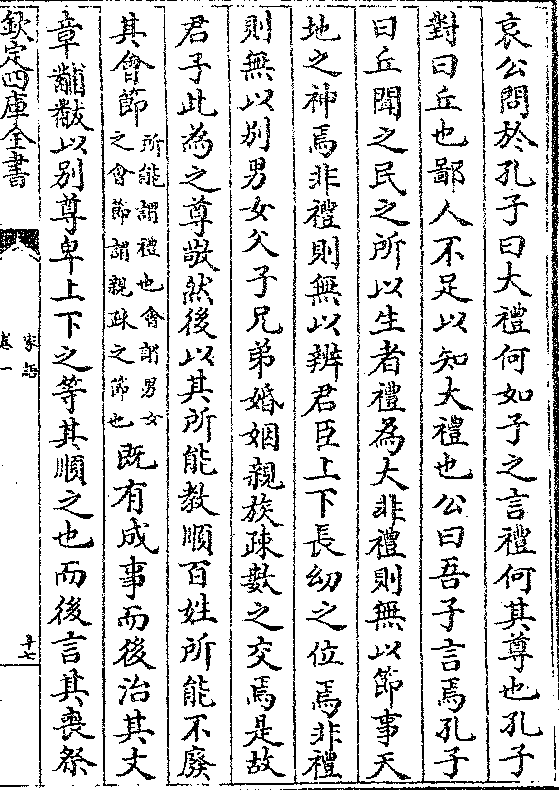 哀公問於孔子曰大禮何如子之言禮何其尊也孔子
對曰丘也鄙人不足以知大禮也公曰吾子言焉孔子
曰丘聞之民之所以生者禮為大非禮則無以節事天
地之神焉非禮則無以辨君臣上下長幼之位焉非禮
則無以别男女父子兄弟婚姻親族疎數之交焉是故
君子此為之尊敬然後以其所能教順百姓所能不廢
其會節所能謂禮也會謂男女之會節謂親疎之節也既有成事而後治其文
章黼黻以别尊卑上下之等其順之也而後言其喪祭
欽定四庫全書
家語
卷一